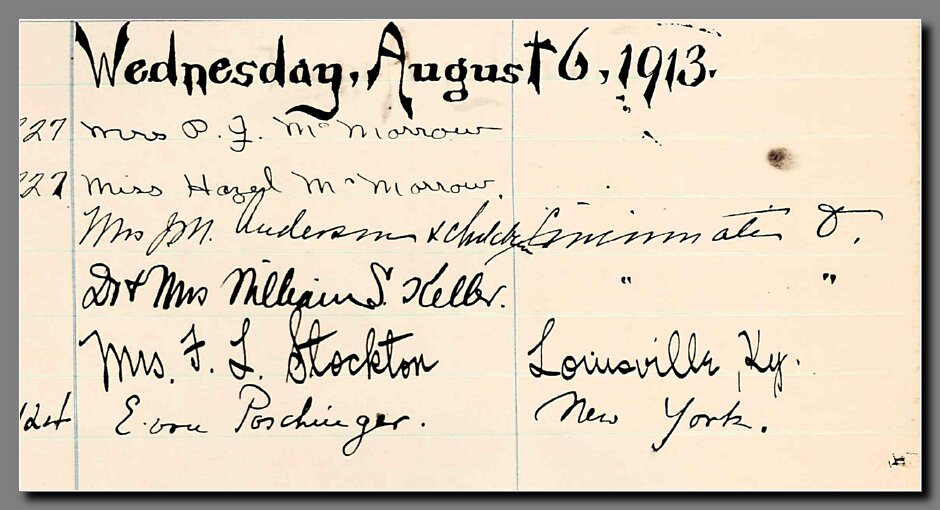 Wednesday, August 6, 1913.
227 Mrs P. J. McMorrow
227 Miss Hazel McMorrow.
Mrs J.M. Anderson & children Cincinnati O.
Dr & Mrs William S. Keller. " "
Mrs. F. L. Stockton Louisville, Ky.
124 E. von Poschinger. New York.